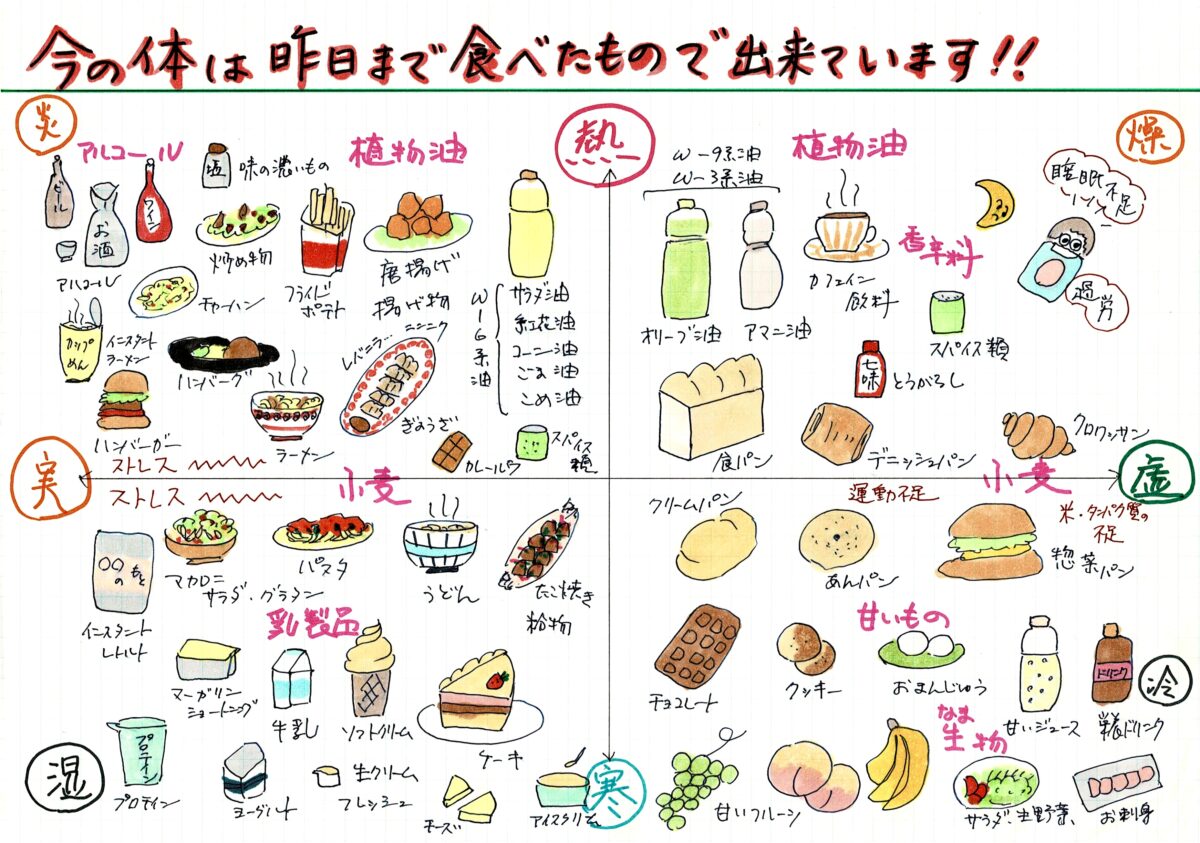 今の体は昨日まで食べたもので出来ています!!
炎
アルコール
ビール
お酒
ワイン
アルコール
塩
味の濃いもの
植物油
炒め物
チャーハン
フライド
ポテト
唐揚げ
揚げ物
W-6系油
サラダ油
紅花油
コーン油
ごま油
こめ油
カップ
めん
インスタント
ラーメン
ハンバーグ
レバニラ…
ニンニク
ハンバーガー
ラーメン
ぎょうざ
カレールウ
スパイス
類
熱
W-9系油
W-3系油
植物油
オリーブ油
アマニ油
カフェイン
飲料
香辛料
スパイス類
七味
とうがらし
睡眠不足
過労
燥
食パン
デニッシュパン
クロワッサン
実
ストレス
ストレス
小麦
○○
のもと
インスタント
レトルト
マカロニ
サラダ・グラタン
パスタ
うどん
たこ焼き
粉物
乳製品
マーガリン
ショートニング
牛乳
ソフトクリーム
ケーキ
湿
プロテイン
プロテイン
ヨーグルト
生クリーム
フレッシュ
チーズ
アイスクリーム
寒
虚
小麦
クリームパン
運動不足
あんパン
米・タンパク質の
不足
惣菜パン
甘いもの
チョコレート
クッキー
おまんじゅう
甘いジュース
ドリンク
栄養ドリンク
冷
なま
生物
甘いフルーツ
サラダ、生野菜、
お刺身